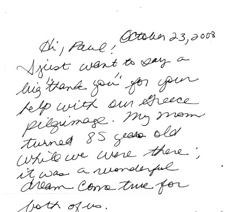 October 23, 2008
Hi, Paul!
I just want to say a
big "thank you" for your
help with our Greece
pilgrimage. My mom
turned 85 years old
while we were there;
it was a wonderful
dream come true for
both of us.